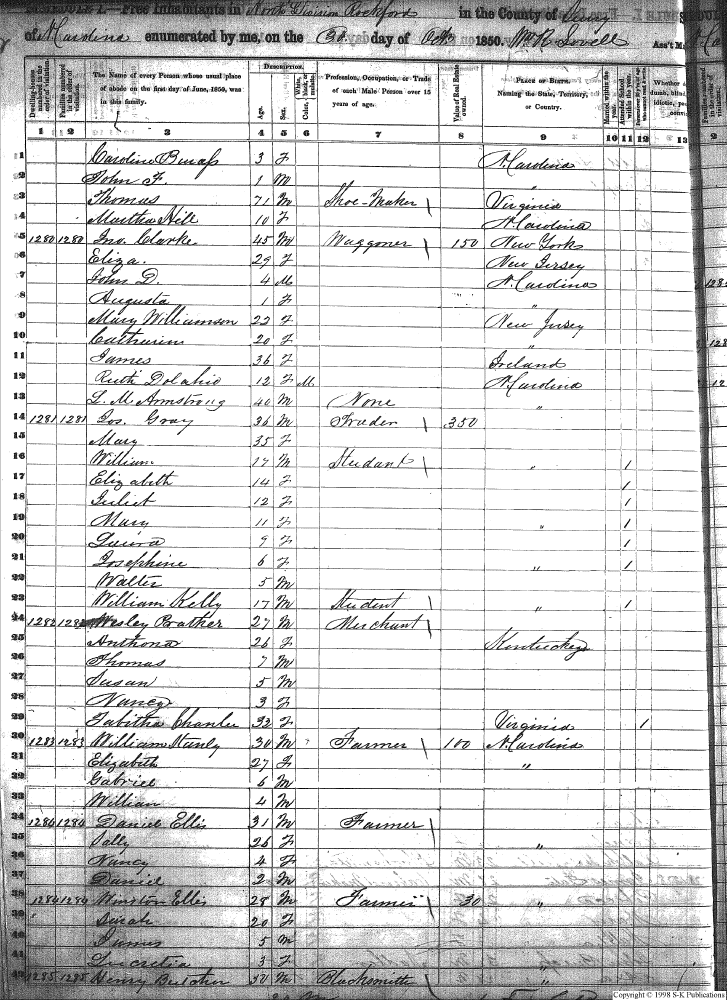 SCHEDULE I.—Free Inhabitants in North Division Rockford in the County of Surry
of N Carolina enumerated by me, on the day of Oct 1850. Wm R Lovell Ass't M
DESCRIPTION.
The Name of every Person whose usual place of abode on the first day of June, 1850, was in this family.
Age. Sex. Color,
Profession, Occupation, or Trade of each Male Person over 15 years of age.
Value of Real Estate owned.
PLACE OF BIRTH. Naming the State, Territory, or Country.
Married within the year. Attended School within the year.
Whether
1 2 3 4 5 6 7 8 9 10 11 12 13 2
1 Caroline 3 F N. Carolina
2 John F. 1 M "
3 Thomas 71 M Shoe-Maker Virginia
4 Martha Hill 10 F N. Carolina
5 1280 1280 Jno. Clarke 45 M Waggoner 150 New York
6 Eliza. 29 F New Jersey
7 John D. 4 M N. Carolina
8 Augusta 1 F "
9 Mary Williamson 22 F New Jersey
10 Catharine 20 F "
11 James 36 F Ireland
12 Ruth 12 F M. N. Carolina
13 L. M. Armstrong 40 M None "
14 1281 1281 Jos. Gray 36 M Trader 350
15 Mary 35 F
16 William 17 M Student " 1
17 Elizabeth 14 F 1
18 Juliet 12 F 1
19 Mary 11 F " 1
20 Laura 9 F 1
21 Josephine 6 F " 1
22 Walter 5 M
23 William Kelly 17 M Student " 1
24 1282 1282 Wesley Prather 27 M Merchant
25 26 F Kentucky
26 Thomas 7 M
27 Susan 5 M
28 Nancy 3 F
29 Tabitha 33 F Virginia 1
30 1283 1283 William 30 M Farmer 100 N. Carolina
31 Elizabeth 27 F "
32 Gabriel 6 M
33 William 4 M
34 1284 1284 Daniel Ellis 31 M Farmer
35 Sally 26 F "
36 Nancy 4 F
37 Daniel 2 M
38 1284 1284 Winston Ellis 28 M Farmer 30 "
39 Sarah 20 F
40 James 5 M
41 Lucretia 3 F "
42 1285 1285 Henry Butcher 30 M Blacksmith "
Copyright © 1998 S-K Publications